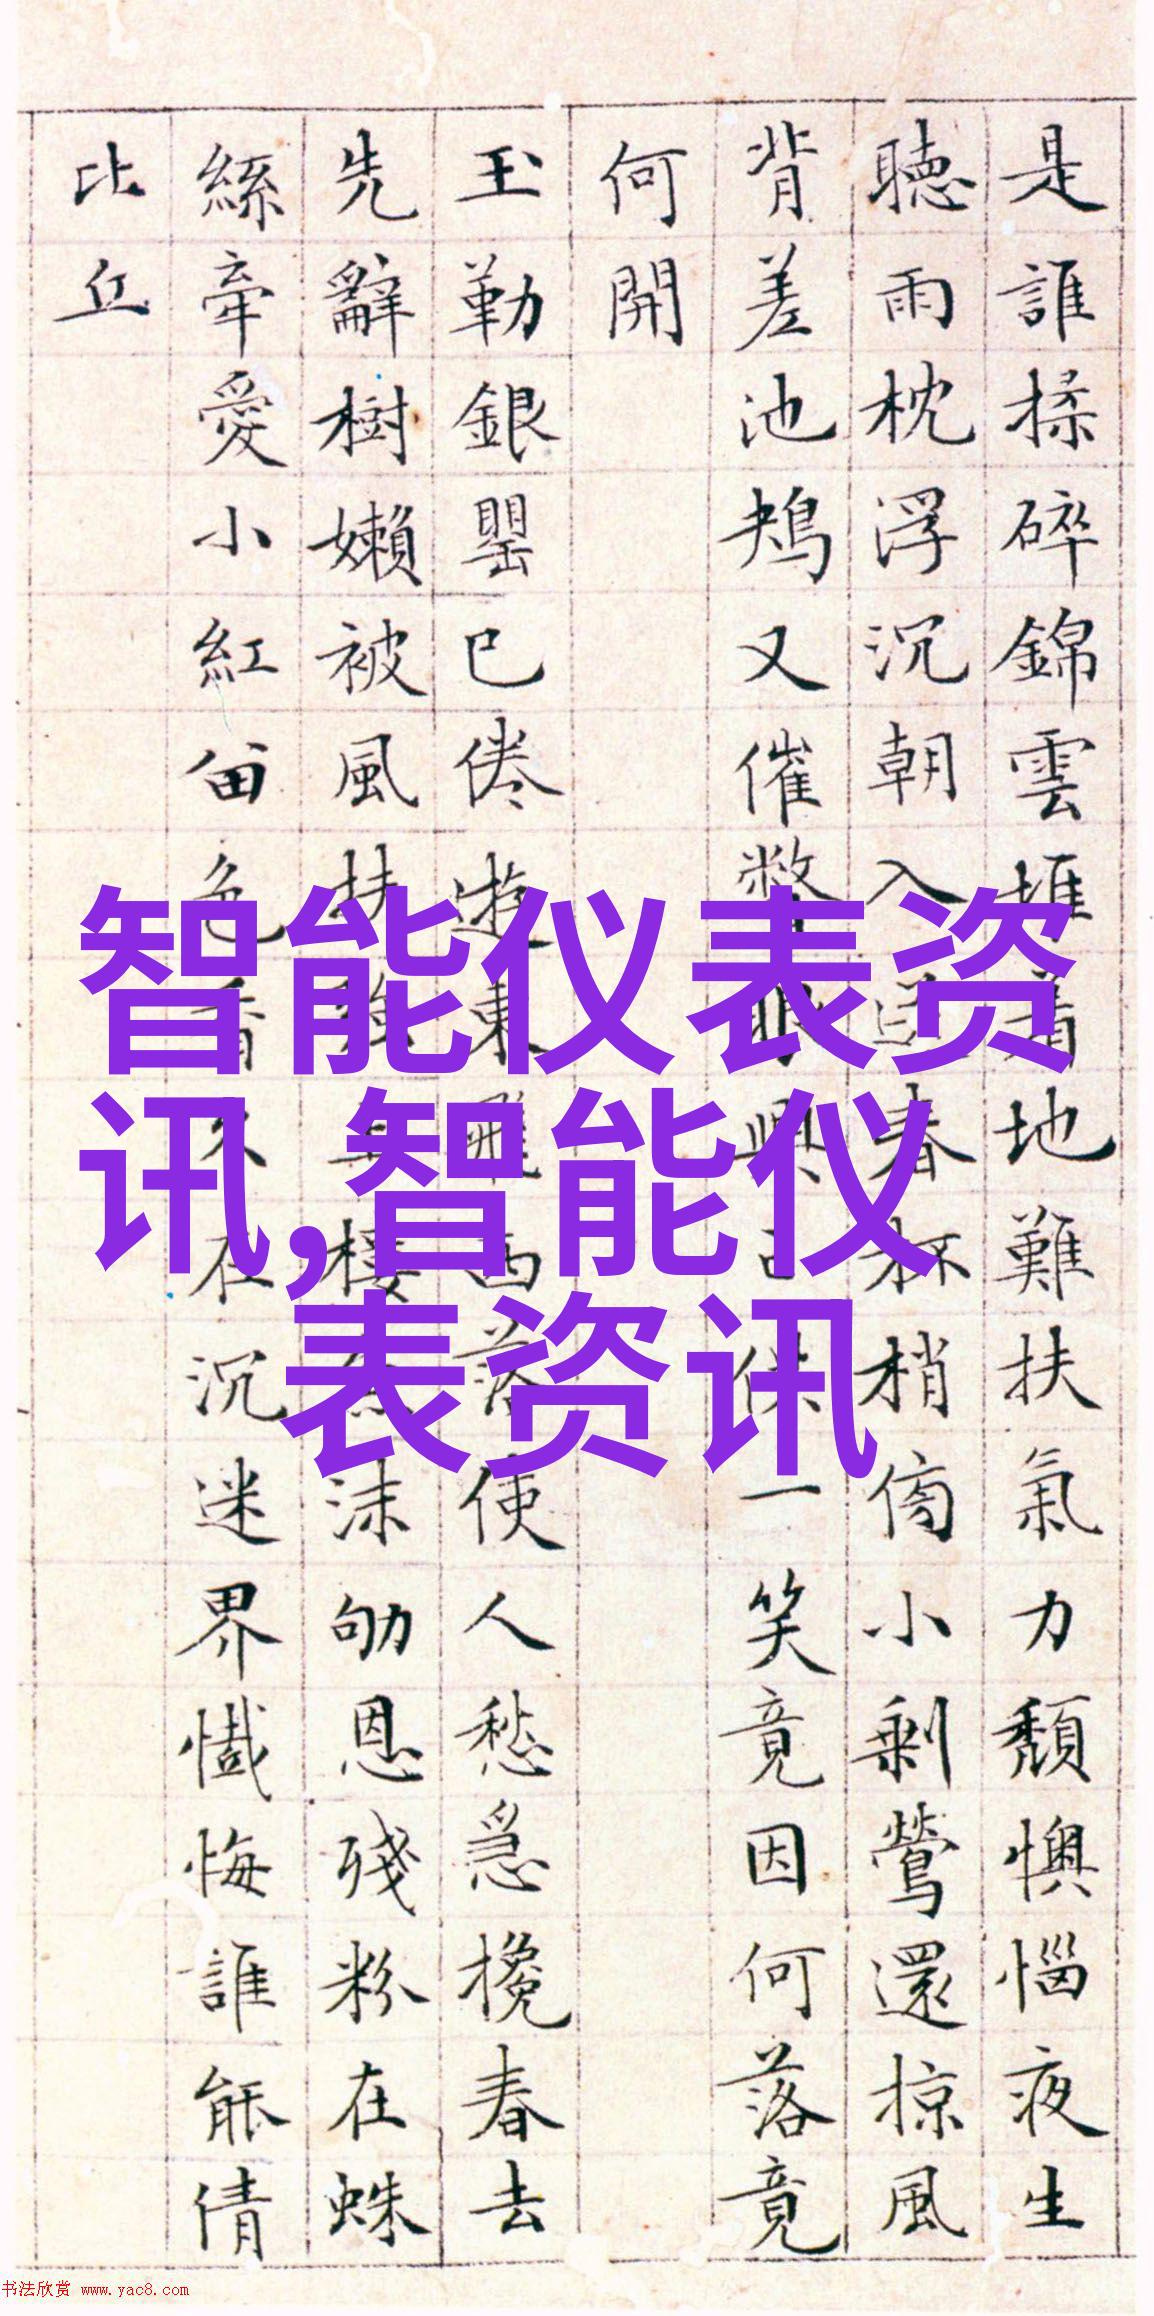 是誰揉碎錦雲堆着地難扶氣力頹懊惱夜生
聽雨枕浮沉朝入送春杯梢傍小剩鶯還掠風
背差池鴂又催眼興供一笑竟因何落竟
何開
玉勒銀罌已倦遊東飛西落使人愁急攙春去
先辭樹嬾被風扶強上樓魚沫劬恩殘粉在蛛
絲牽愛小紅留色香久在沉迷界懺悔誰能倩
比丘
智能仪表资
讯,智能仪
表资讯
书法欣赏 www.yac8.com